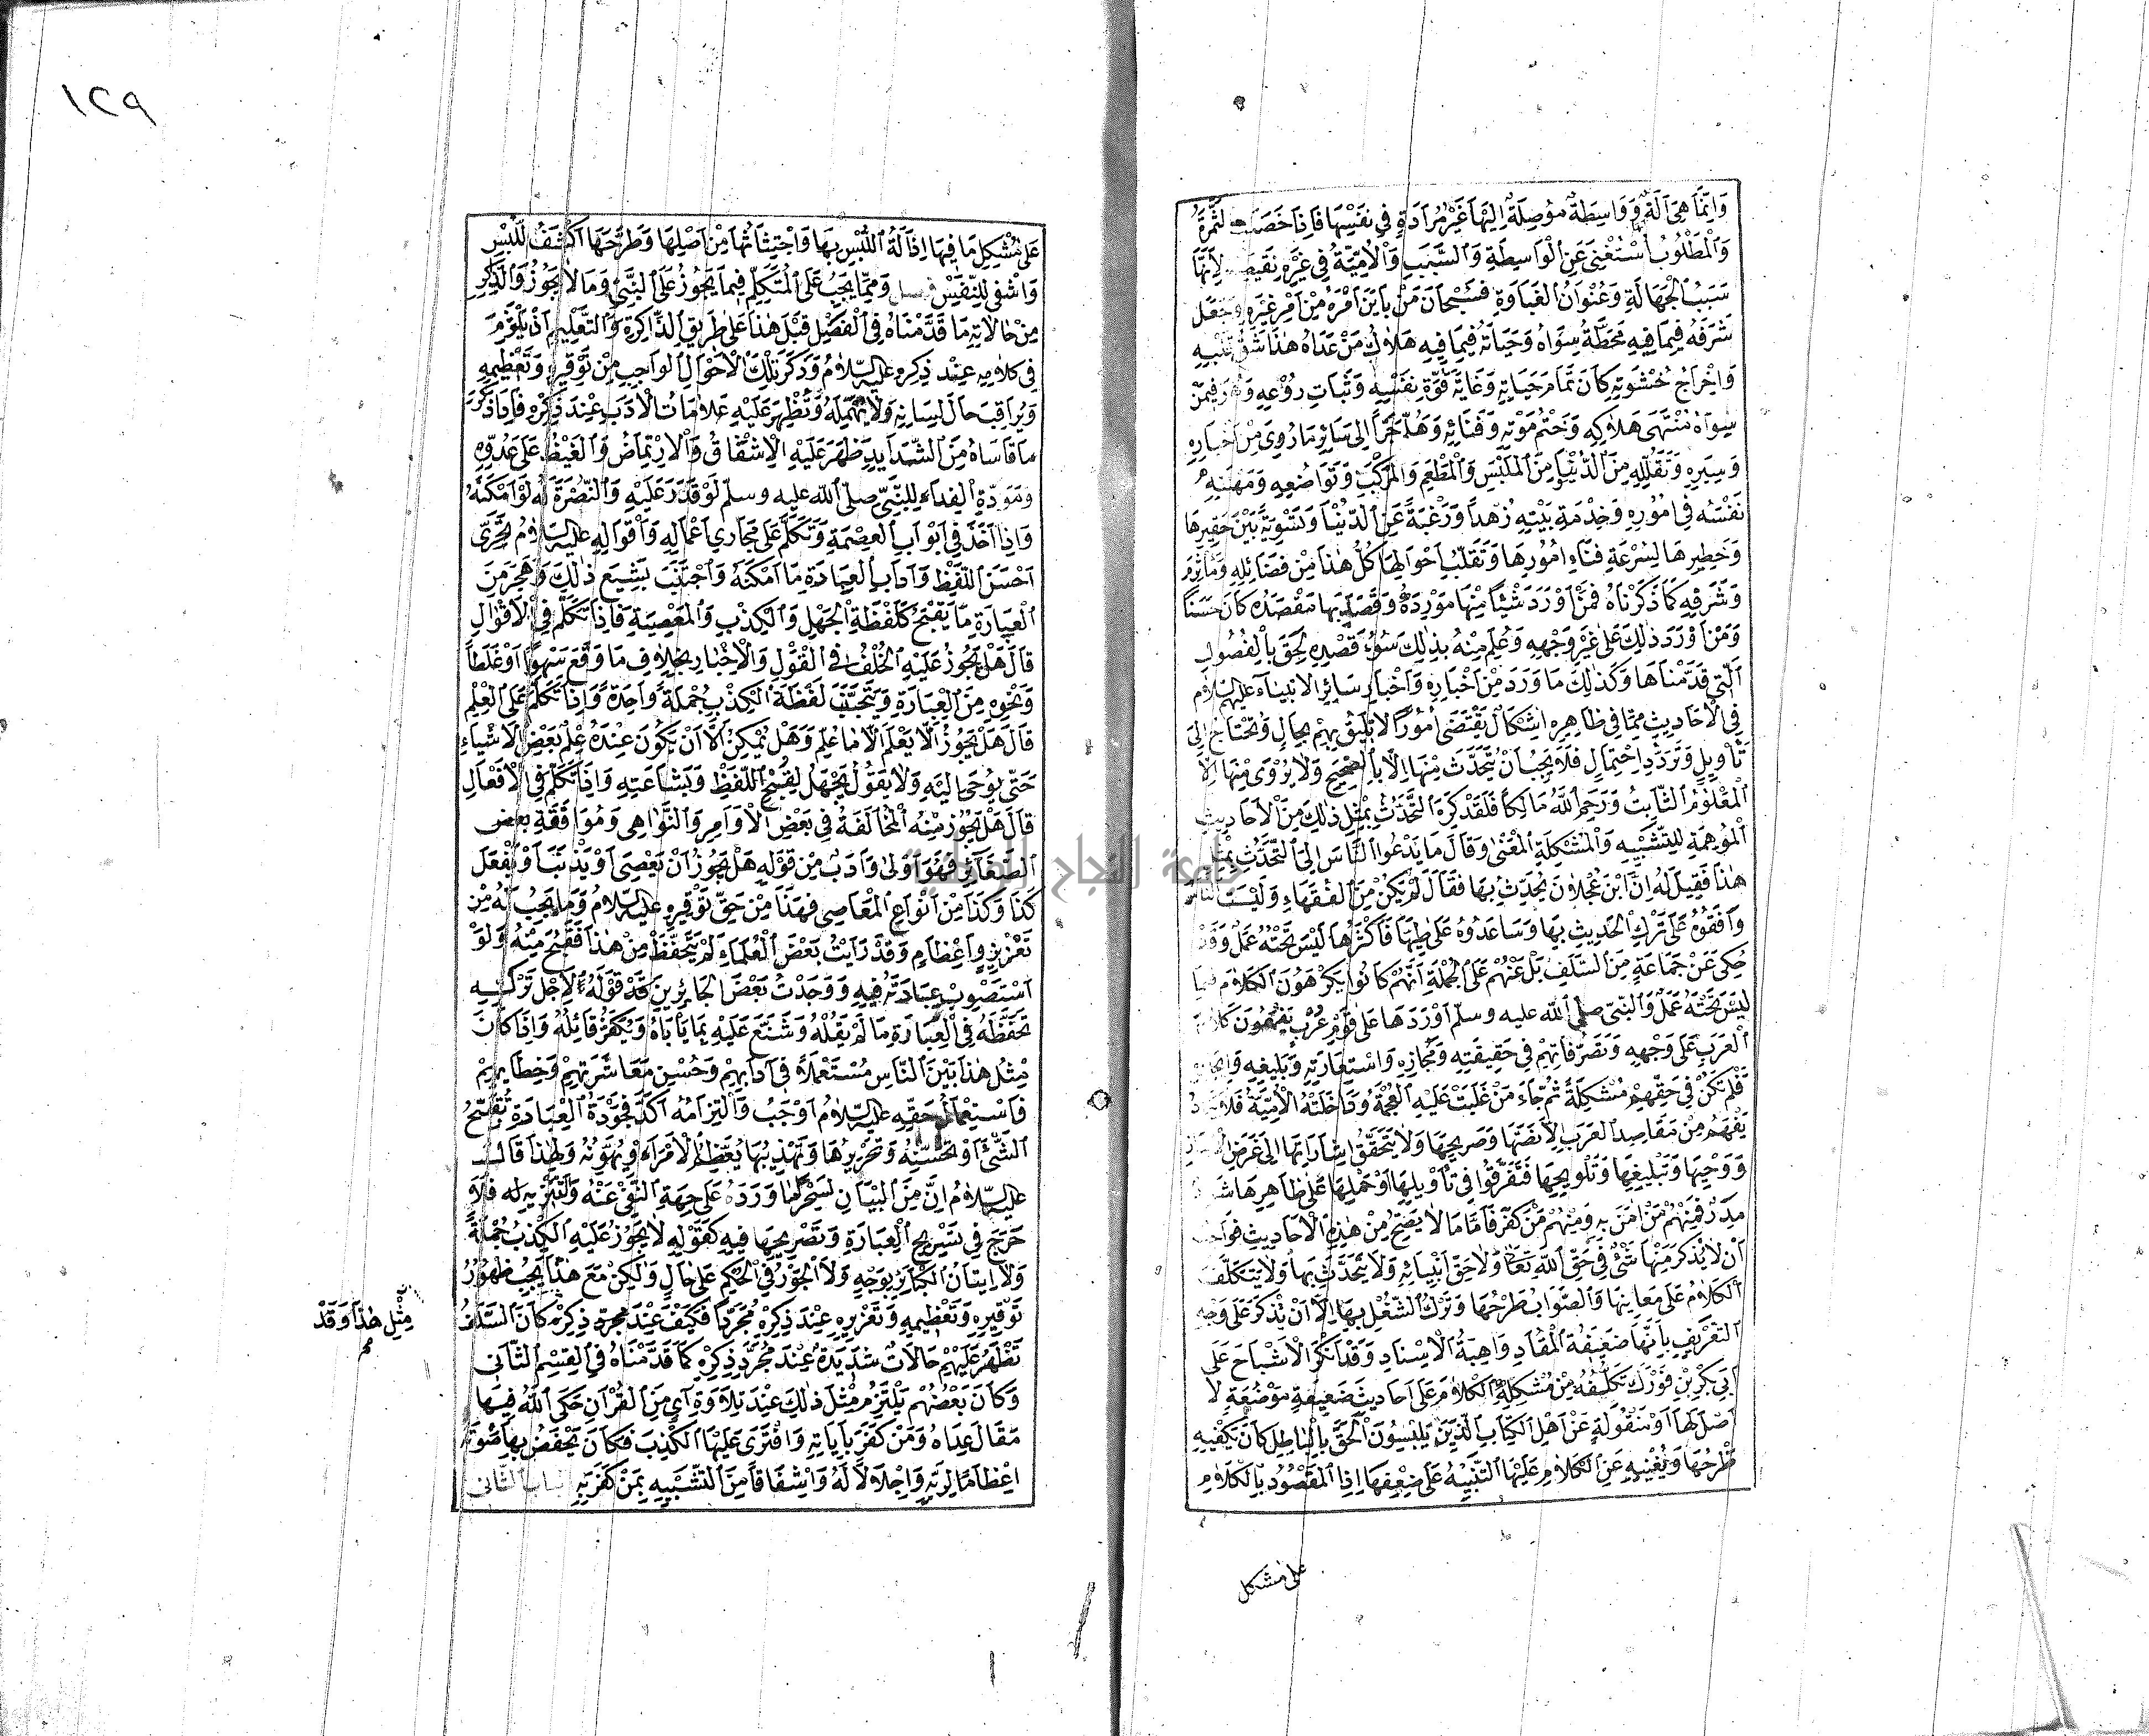 وَاِنَّمَا هِيَ آلَةٌ وَوَاسِطَةٌ مُوصِلَةٌ اِلَيْهَا غَيْرُ مُرَادَةٍ فِي نَفْسِهَا فَاِذَا حَصَلَتِ الثَّمَرَةُ
وَالْمَطْلُوبُ اسْتُغْنِيَ عَنِ الْوَاسِطَةِ وَالسَّبَبِ وَالْاُمِّيَّةُ فِي غَيْرِهِ نَقِيصَةٌ لِاَنَّهَا
سَبَبُ الْجَهَالَةِ وَعُنْوَانُ الْغَبَاوَةِ فَسُبْحَانَ مَنْ بَايَنَ اَمْرَهُ مِنْ اَمْرِ غَيْرِهِ وَجَعَلَ
شَرَفَهُ فِيمَا فِيهِ مَحَطَّةُ سِوَاهُ وَحَيَاتَهُ فِيمَا فِيهِ هَلَاكُ مَنْ عَدَاهُ هٰذَا شَقُّ قَلْبِهِ
وَاِخْرَاجُ حُشْوَتِهِ كَانَ تَمَامَ حَيَاتِهِ وَغَايَةَ قُوَّةِ نَفْسِهِ وَثَبَاتِ رُوعِهِ وَهُوَ فِيمَنْ
سِوَاهُ مُنْتَهَى هَلَاكِهِ وَحَتْمُ مَوْتِهِ وَفَنَائِهِ وَهَلُمَّ جَرًّا اِلَى سَائِرِ مَا رُوِيَ مِنْ اَخْبَارِهِ
وَسِيَرِهِ وَتَقَلُّلِهِ مِنَ الدُّنْيَا مِنَ الْمَلْبَسِ وَالْمَطْعَمِ وَالْمَرْكَبِ وَتَوَاضُعِهِ وَمَهْنَتِهِ
نَفْسَهُ فِي اُمُورِهِ وَخِدْمَةِ بَيْتِهِ زُهْدًا وَرَغْبَةً عَنِ الدُّنْيَا وَتَسْوِيَةً بَيْنَ حَقِيرِهَا
وَخَطِيرِهَا لِسُرْعَةِ فَنَاءِ اُمُورِهَا وَتَقَلُّبِ اَحْوَالِهَا كُلُّ هٰذَا مِنْ فَضَائِلِهِ وَمَاٰثِرِهِ
وَشَرَفِهِ كَمَا ذَكَرْنَاهُ فَمَنْ اَوْرَدَ شَيْئًا مِنْهَا مَوْرِدَهُ وَقَصَدَ بِهَا مَقْصَدَهُ كَانَ حَسَنًا
وَمَنْ اَوْرَدَ ذٰلِكَ عَلَى غَيْرِ وَجْهِهِ وَعُلِمَ مِنْهُ بِذٰلِكَ سُوءُ قَصْدِهِ لَحِقَ بِالْفُصُولِ
الَّتِي قَدَّمْنَاهَا وَكَذٰلِكَ مَا وَرَدَ مِنْ اَخْبَارِهِ وَاَخْبَارِ سَائِرِ الْاَنْبِيَاءِ عليهم السلام
فِي الْاَحَادِيثِ مِمَّا فِي ظَاهِرِهِ اِشْكَالٌ يَقْتَضِي اُمُورًا لَا تَلِيقُ بِهِمْ بِحَالٍ وَتَحْتَاجُ اِلَى
تَأْوِيلٍ وَتَرَدُّدِ احْتِمَالٍ فَلَا يَجِبُ اَنْ يُتَحَدَّثَ مِنْهَا اِلَّا بِالصَّحِيحِ وَلَا يُرْوَى مِنْهَا اِلَّا
الْمَعْلُومُ الثَّابِتُ وَرَحِمَ اللّٰهُ مَالِكًا فَلَقَدْ كَرِهَ التَّحَدُّثَ بِمِثْلِ ذٰلِكَ مِنَ الْاَحَادِيثِ
الْمُوهِمَةِ لِلتَّشْبِيهِ وَالْمُشْكِلَةِ الْمَعْنَى وَقَالَ مَا يَدْعُوا النَّاسَ اِلَى التَّحَدُّثِ بِمِثْلِ
هٰذَا فَقِيلَ لَهُ اِنَّ ابْنَ عَجْلَانَ يُحَدِّثُ بِهَا فَقَالَ لَمْ يَكُنْ مِنَ الْفُقَهَاءِ وَلَيْتَ النَّاسَ
وَافَقُوهُ عَلَى تَرْكِ الْحَدِيثِ بِهَا وَسَاعَدُوهُ عَلَى طَيِّهَا فَاَكْثَرُهَا لَيْسَ تَحْتَهُ عَمَلٌ وَقَدْ
حُكِيَ عَنْ جَمَاعَةٍ مِنَ السَّلَفِ بَلْ عَنْهُمْ عَلَى الْجُمْلَةِ اَنَّهُمْ كَانُوا يَكْرَهُونَ الْكَلَامَ فِيمَا
لَيْسَ تَحْتَهُ عَمَلٌ وَالنَّبِيُّ صلى الله عليه وسلم اَوْرَدَهَا عَلَى قَوْمٍ عُرْبٍ يَفْهَمُونَ كَلَامَ
الْعَرَبِ عَلَى وَجْهِهِ وَتَصَرُّفَاتِهِمْ فِي حَقِيقَتِهِ وَمَجَازِهِ وَاسْتِعَارَتِهِ وَبَلِيغِهِ وَاِيجَازِهِ
فَلَمْ تَكُنْ فِي حَقِّهِمْ مُشْكِلَةً ثُمَّ جَاءَ مَنْ غَلَبَتْ عَلَيْهِ الْعُجْمَةُ وَدَاخَلَتْهُ الْاُمِّيَّةُ فَلَا يَكَادُ
يَفْهَمُ مِنْ مَقَاصِدِ الْعَرَبِ اِلَّا نَصَّهَا وَصَرِيحَهَا وَلَا يَتَحَقَّقُ اِشَارَاتِهَا اِلَى غَرَضِ
وَوَحْيِهَا وَتَبْلِيغِهَا وَتَلْوِيحِهَا فَتَفَرَّقُوا فِي تَأْوِيلِهَا اَوْ حَمْلِهَا عَلَى ظَاهِرِهَا شَذَرَ
مَذَرَ فَمِنْهُمْ مَنْ اٰمَنَ بِهِ وَمِنْهُمْ مَنْ كَفَرَ فَاَمَّا مَا لَا يَصِحُّ مِنْ هٰذِهِ الْاَحَادِيثِ فَوَاجِبٌ
اَنْ لَا يُذْكَرَ مِنْهَا شَيْءٌ فِي حَقِّ اللّٰهِ تَعَالَى وَلَا حَقِّ اَنْبِيَائِهِ وَلَا يُتَحَدَّثَ بِهَا وَلَا يُتَكَلَّفَ
الْكَلَامُ عَلَى مَعَانِيهَا وَالصَّوَابُ طَرْحُهَا وَتَرْكُ الشُّغْلِ بِهَا اِلَّا اَنْ تُذْكَرَ عَلَى وَجْهِ
التَّعْرِيفِ بِاَنَّهَا ضَعِيفَةُ الْمَقَادِ وَاهِيَةُ الْاِسْنَادِ وَقَدْ اَنْكَرَ الْاَشْيَاخُ عَلَى
اَبِي بَكْرِ بْنِ فَوْرَكٍ تَكَلُّفَهُ مِنْ مُشْكِلَةِ الْكَلَامَ عَلَى اَحَادِيثَ ضَعِيفَةٍ مَوْضُوعَةٍ لَا
اَصْلَ لَهَا اَوْ مَنْقُولَةٍ عَنْ اَهْلِ الْكِتَابِ الَّذِينَ يَلْبِسُونَ الْحَقَّ بِالْبَاطِلِ كَانَ يَكْفِيهِ
طَرْحُهَا وَيُغْنِيهِ عَنِ الْكَلَامِ عَلَيْهَا التَّنْبِيهُ عَلَى ضَعْفِهَا اِذِ الْمَقْصُودُ بِالْكَلَامِ
على مشكل
١٢٩
عَلَى مُشْكِلِ مَا فِيهَا اِزَالَةُ اللَّبْسِ بِهَا وَاجْتِثَاثُهَا مِنْ اَصْلِهَا وَطَرْحُهَا اَكْشَفُ لِلَّبْسِ
وَاَشْفَى لِلنَّفْسِ فصل وَمِمَّا يَجِبُ عَلَى الْمُتَكَلِّمِ فِيمَا يَجُوزُ عَلَى النَّبِيِّ وَمَا لَا يَجُوزُ وَالذَّاكِرِ
مِنْ حَالَاتِهِ مَا قَدَّمْنَاهُ فِي الْفَصْلِ قَبْلَ هٰذَا عَلَى طَرِيقِ الْمُذَاكَرَةِ وَالتَّعْلِيمِ اَنْ يَلْتَزِمَ
فِي كَلَامِهِ عِنْدَ ذِكْرِهِ عليه السلام وَذِكْرِ تِلْكَ الْاَحْوَالِ الْوَاجِبِ مِنْ تَوْقِيرِهِ وَتَعْظِيمِهِ
وَيُرَاقِبَ حَالَ لِسَانِهِ وَلَا يُهْمِلَهُ وَتَظْهَرَ عَلَيْهِ عَلَامَاتُ الْاَدَبِ عِنْدَ ذِكْرِهِ فَاِذَا ذَكَرَ
مَا قَاسَاهُ مِنَ الشَّدَائِدِ ظَهَرَ عَلَيْهِ الْاِشْفَاقُ وَالْاِرْتِمَاضُ وَالْغَيْظُ عَلَى عَدُوِّهِ
وَمَوَدَّةِ الْفِدَاءِ لِلنَّبِيِّ صلى الله عليه وسلم لَوْ قَدَرَ عَلَيْهِ وَالنُّصْرَةَ لَهُ لَوْ اَمْكَنَهُ
وَاِذَا اَخَذَ فِي اَبْوَابِ الْعِصْمَةِ وَتَكَلَّمَ عَلَى مَجَارِي اَعْمَالِهِ وَاَقْوَالِهِ عليه السلام تَحَرَّى
اَحْسَنَ اللَّفْظِ وَاٰدَابَ الْعِبَارَةِ مَا اَمْكَنَهُ وَاجْتَنَبَ بَشِيعَ ذٰلِكَ وَهَجَرَ مِنَ
الْعِبَارَةِ مَا يَقْبُحُ كَلَفْظَةِ الْجَهْلِ وَالْكَذِبِ وَالْمَعْصِيَةِ فَاِذَا تَكَلَّمَ فِي الْاَقْوَالِ
قَالَ هَلْ يَجُوزُ عَلَيْهِ الْخُلْفُ فِي الْقَوْلِ وَالْاِخْبَارِ بِخِلَافِ مَا وَقَعَ سَهْوًا اَوْ غَلَطًا
وَنَحْوِهِ مِنَ الْعِبَارَةِ وَيَتَجَنَّبُ لَفْظَةَ الْكَذِبِ جُمْلَةً وَاحِدَةً وَاِذَا تَكَلَّمَ عَلَى الْعِلْمِ
قَالَ هَلْ يَجُوزُ اَلَّا يَعْلَمَ اِلَّا مَا عُلِّمَ وَهَلْ يُمْكِنُ اَلَّا اَنْ يَكُونَ عِنْدَهُ عِلْمُ بَعْضِ الْاَشْيَاءِ
حَتَّى يُوحَى اِلَيْهِ وَلَا يَقُولُ يَجْهَلُ لِقُبْحِ اللَّفْظِ وَبَشَاعَتِهِ وَاِذَا تَكَلَّمَ فِي الْاَفْعَالِ
قَالَ هَلْ يَجُوزُ مِنْهُ الْمُخَالَفَةُ فِي بَعْضِ الْاَوَامِرِ وَالنَّوَاهِي وَمُوَافَقَةِ بَعْضِ
الصَّغَائِرِ فَهُوَ اَوْلَى وَاَدَبُ مِنْ قَوْلِهِ هَلْ يَجُوزُ اَنْ يَعْصِيَ اَوْ يُذْنِبَ اَوْ يَفْعَلَ
كَذَا وَكَذَا مِنْ اَنْوَاعِ الْمَعَاصِي فَهٰذَا مِنْ حَقِّ تَوْقِيرِهِ عليه السلام وَمَا يَجِبُ لَهُ مِنْ
تَعْزِيزٍ وَاِعْظَامٍ وَقَدْ رَاَيْتُ بَعْضَ الْعُلَمَاءِ لَمْ يَتَحَفَّظْ مِنْ هٰذَا فَقُبِحَ مِنْهُ وَلَوْ
اسْتَصْوِبْ عِبَارَتَهُ فِيهِ وَوَجَدْتُ بَعْضَ الْجَائِرِينَ قَدْ قَوَّلَهُ لِاَجْلِ تَرْكِ
تَحَفُّظِهِ فِي الْعِبَارَةِ مَا لَمْ يَقُلْهُ وَشَنَّعَ عَلَيْهِ بِمَا يَأْبَاهُ وَيُكَفِّرُ قَائِلَهُ وَاِذَا كَانَ
مِثْلُ هٰذَا بَيْنَ النَّاسِ مُسْتَعْمَلًا فِي اٰدَابِهِمْ وَحُسْنِ مُعَاشَرَتِهِمْ وَخِطَابِهِمْ
فَاسْتِعْمَالُهُ حَقِّهِ عليه السلام اَوْجَبُ وَالْتِزَامُهُ اٰكَدُ فَجَوْدَةُ الْعِبَارَةِ تُقَبِّحُ
الشَّيْءَ اَوْ تُحَسِّنُهُ وَتَحْرِيرُهَا وَتَهْذِيبُهَا يُعَظِّمُ الْاَمْرَ اَوْ يُهَوِّنُهُ وَلِهٰذَا قَالَ
عليه السلام اِنَّ مِنَ الْبَيَانِ لَسِحْرًا مَا وَرَدَهُ عَلَى جِهَةِ النَّفْيِ عَنْهُ وَالتَّنْزِيهِ لَهُ فَلَا
حَرَجَ فِي تَسْرِيحِ الْعِبَارَةِ وَتَصْرِيحِهَا فِيهِ كَقَوْلِهِ لَا يَجُوزُ عَلَيْهِ الْكَذِبُ جُمْلَةً
وَلَا اِتْيَانُ الْكَبَائِرِ بِوَجْهٍ وَلَا الْجَوْرُ فِي الْحُكْمِ عَلَى حَالٍ وَلٰكِنْ مَعَ هٰذَا يَجِبُ ظُهُورُ
تَوْقِيرِهِ وَتَعْظِيمِهِ وَتَعْزِيرِهِ عِنْدَ ذِكْرِهِ مُجَرَّدًا فَكَيْفَ عِنْدَ مُجَرَّدِ ذِكْرِهِ كَانَ السَّلَفُ
مِثْلِ هٰذَا وَقَدْ
تَظْهَرُ عَلَيْهِمْ حَالَاتٌ شَدِيدَةٌ عِنْدَ مُجَرَّدِ ذِكْرِهِ كَمَا قَدَّمْنَاهُ فِي الْقِسْمِ الثَّانِي
وَكَانَ بَعْضُهُمْ يَلْتَزِمُ مِثْلَ ذٰلِكَ عِنْدَ تِلَاوَةِ اٰيٍ مِنَ الْقُرْاٰنِ حَكَى اللّٰهُ فِيهَا
مَقَالَ عِدَاهُ وَمَنْ كَفَرَ بِاٰيَاتِهِ وَافْتَرَى عَلَيْهَا الْكَذِبَ فَكَانَ يَخْفِضُ بِهَا صَوْتَهُ
اِعْظَامًا لِرَبِّهِ وَاِجْلَالًا لَهُ وَاِشْفَاقًا مِنَ التَّشْبِيهِ بِمَنْ كَفَرَ بِهِ الباب الثاني
جامعة النجاح الوطنية